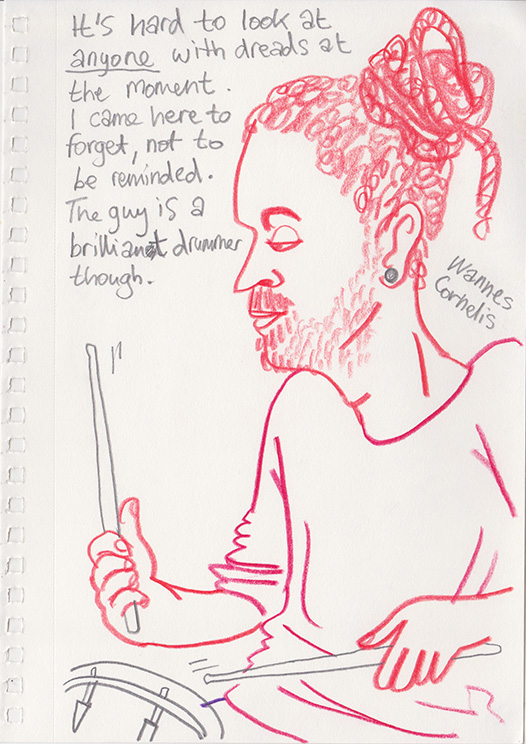 It's hard to look at
anyone with dreads at
the moment.
I came here to
forget, not to
be reminded.
The guy is a
brilliant drummer
though.
Wannes
Cornelis